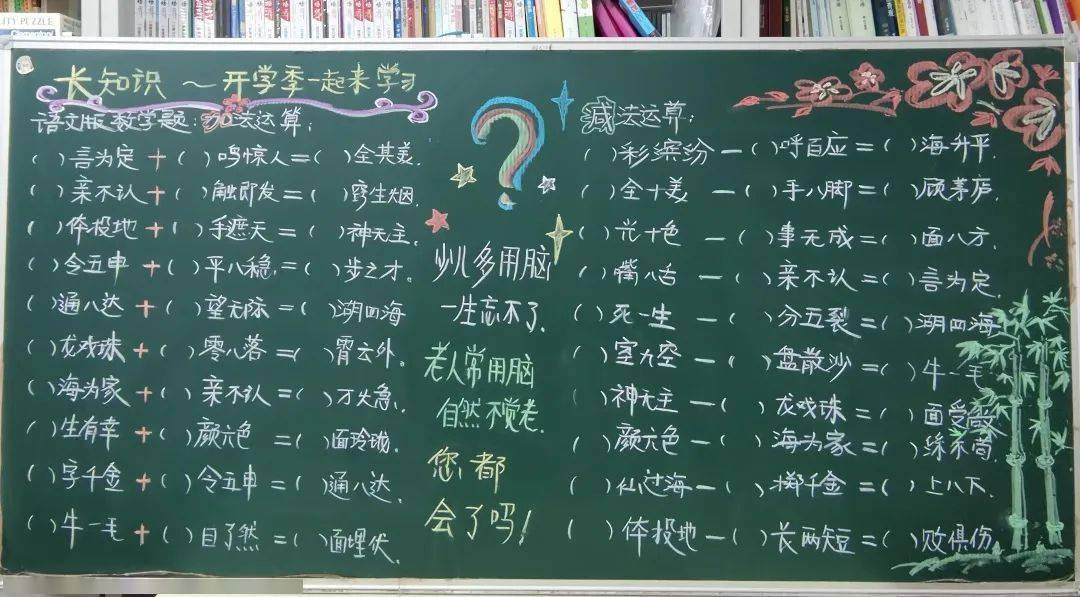 ITY PUZZLE
Clementoni
长知识～开学季一起来学习
语文版数学题:加法运算:
( )言为定+( )鸣惊人=( )全其美.
( )亲不认+( )触即发=( )窍生烟.
( )体投地+( )手遮天=( )神无主.
( )令五申+( )平八稳.=( )步之才。
( )通八达+( )望无际=( )湖四海
( )龙戏珠+( )零八落=( )霄云外.
( )海为家+( )亲不认=( )万火急.
( )生有幸+( )颜六色=( )面玲珑.
( )字千金+( )令五申=( )通八达.
( )牛一毛+( )目了然=( )面埋伏.
?
少儿多用脑
一生忘不了.
老人常用脑
自然不觉老.
您都
会了吗!
减法运算:
( )彩缤纷-( )呼百应=( )海升平.
( )全十美-( )手八脚=( )顾茅庐.
( )光十色-( )事无成=( )面八方.
( )嘴八舌-( )亲不认=( )言为定.
( )死一生-( )分五裂=( )湖四海
( )室九空-( )盘散沙=( )牛一毛
( )神无主-( )龙戏珠=( )面受敌
( )颜六色-( )海为家=( )丝不苟
( )仙过海-( )掷千金=( )上八下.
( )体投地-( )长两短=( )败俱伤